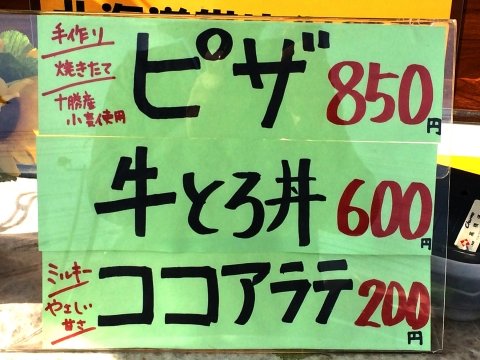 手作り
焼きたて
十勝産
小麦使用
ピザ 850円
牛とろ丼 600円
ミルキー
やさしい
甘さ
ココアラテ 200円